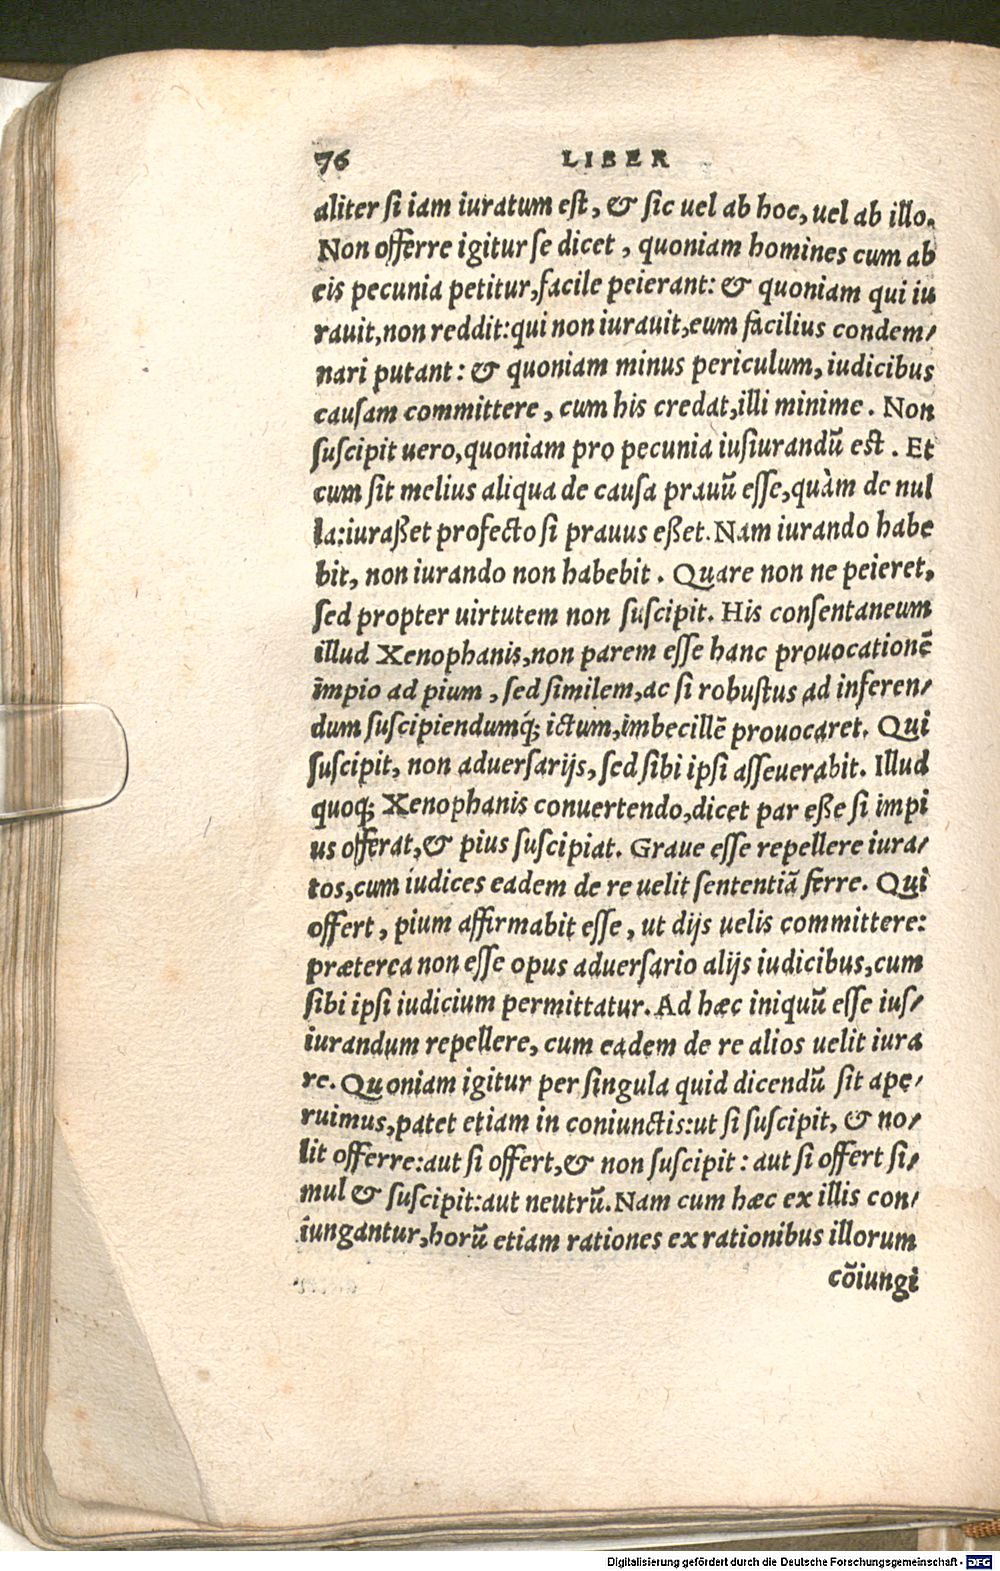 76 LIBER
aliter si iam iuratum est, & sic uel ab hoc, uel ab illo.
Non offerre igitur se dicet, quoniam homines cum ab
eis pecunia petitur, facile peierant: & quoniam qui iu
rauit, non reddit: qui non iurauit, eum facilius condem/
nari putant: & quoniam minus periculum, iudicibus
causam committere, cum his credat, illi minime. Non
suscipit uero, quoniam pro pecunia iusiurandū est. Et
cum sit melius aliqua de causa prauū esse, quàm de nul
la: iurasset profecto si prauus esset. Nam iurando habe
bit, non iurando non habebit. Quare non ne peieret,
sed propter uirtutem non suscipit. His consentaneum
illud Xenophanis, non parem esse hanc prouocationē
impio ad pium, sed similem, ac si robustus ad inferen/
dum suscipiendumq́; ictum, imbecillē prouocaret. Qui
suscipit, non aduersarijs, sed sibi ipsi asseuerabit. Illud
quoq; Xenophanis conuertendo, dicet par esse si impi
us offerat, & pius suscipiat. Graue esse repellere iura/
tos, cum iudices eadem de re uelit sententiā ferre. Qui
offert, pium affirmabit esse, ut dijs uelis committere:
præterea non esse opus aduersario alijs iudicibus, cum
sibi ipsi iudicium permittatur. Ad hæc iniquū esse ius/
iurandum repellere, cum eadem de re alios uelit iura
re. Quoniam igitur per singula quid dicendū sit ape/
ruimus, patet etiam in coniunctis: ut si suscipit, & no/
lit offerre: aut si offert, & non suscipit: aut si offert si/
mul & suscipit: aut neutrū. Nam cum hæc ex illis con/
iungantur, horū etiam rationes ex rationibus illorum
cōiungi
Digitalisierung gefördert durch die Deutsche Forschungsgemeinschaft - DFG